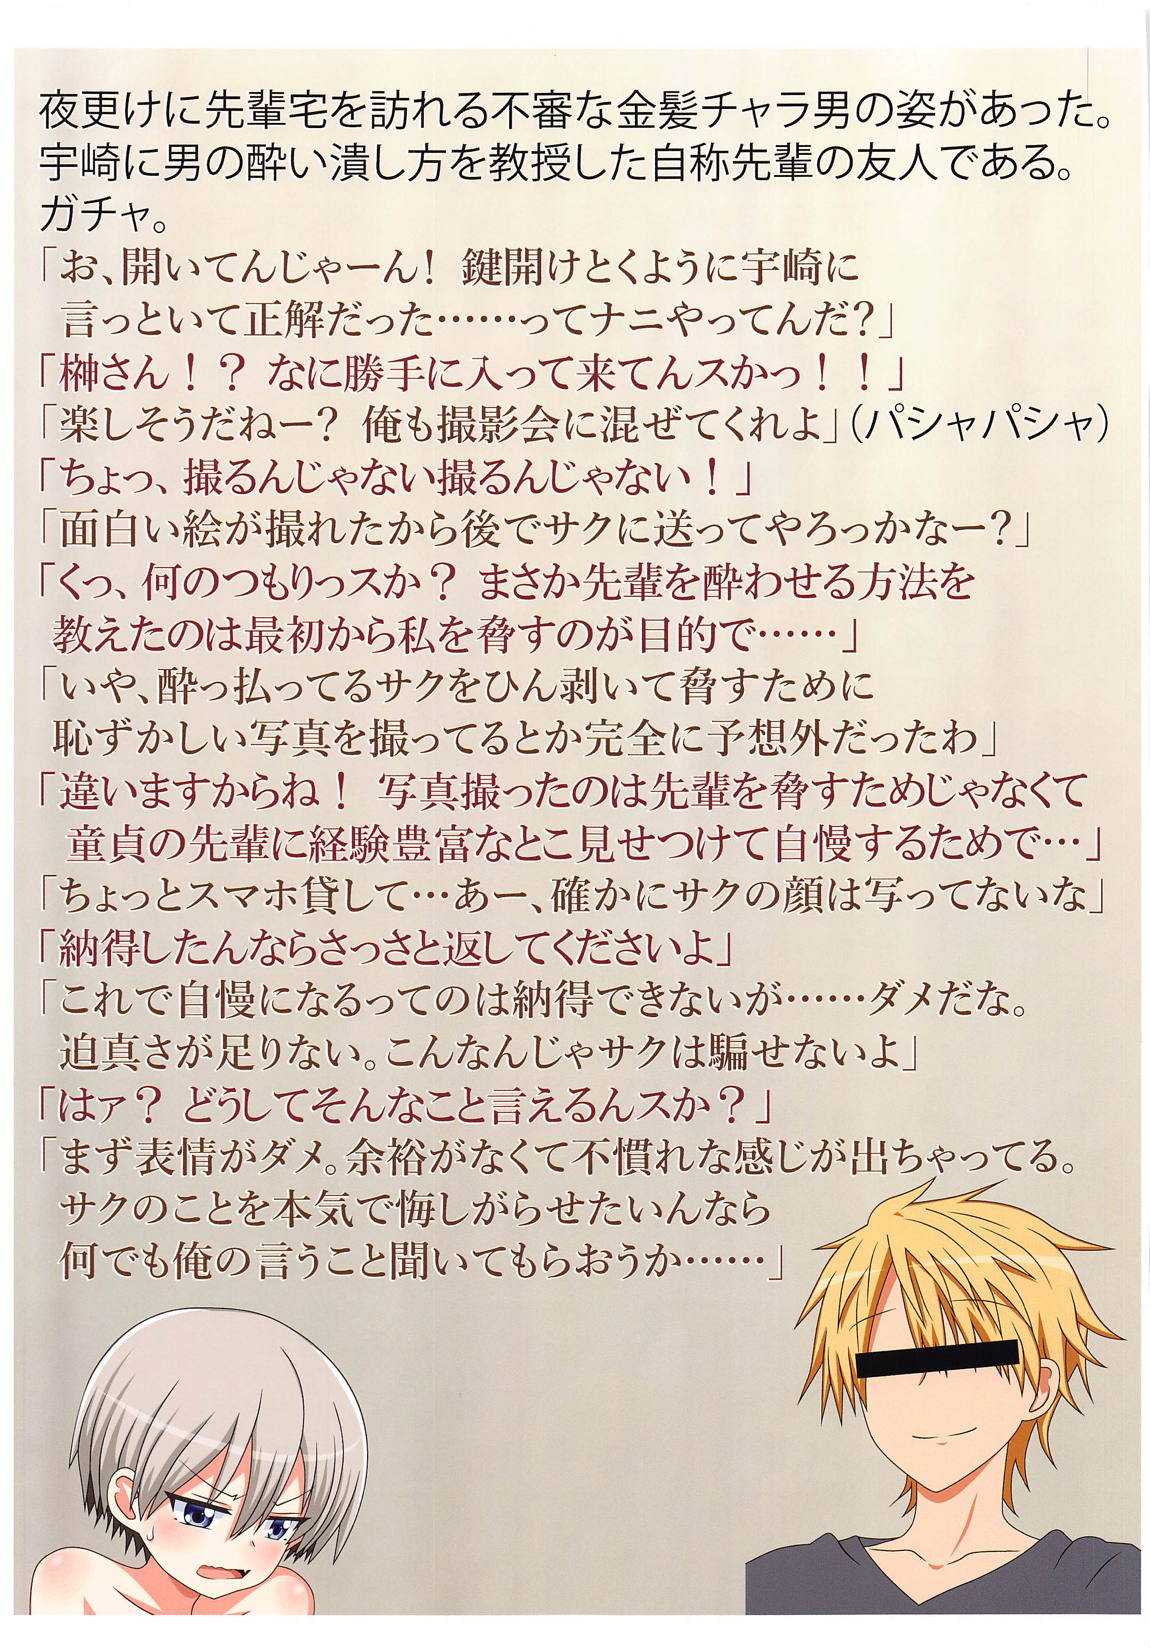 夜更けに先輩宅を訪れる不審な金髪チャラ男の姿があった。
宇崎に男の酔い潰し方を教授した自称先輩の友人である。
ガチャ。
「お、開いてんじゃーん！ 鍵開けとくように宇崎に
言っといて正解だった……ってナニやってんだ？」
「榊さん！？ なに勝手に入って来てんスかっ！！」
「楽しそうだねー？ 俺も撮影会に混ぜてくれよ」（パシャパシャ）
「ちょっ、撮るんじゃない撮るんじゃない！」
「面白い絵が撮れたから後でサクに送ってやろっかなー？」
「くっ、何のつもりっスか？ まさか先輩を酔わせる方法を
教えたのは最初から私を脅すのが目的で……」
「いや、酔っ払ってるサクをひん剥いて脅すために
恥ずかしい写真を撮ってるとか完全に予想外だったわ」
「違いますからね！ 写真撮ったのは先輩を脅すためじゃなくて
童貞の先輩に経験豊富なとこ見せつけて自慢するためで…」
「ちょっとスマホ貸して…あー、確かにサクの顔は写ってないな」
「納得したんならさっさと返してくださいよ」
「これで自慢になるってのは納得できないが……ダメだな。
迫真さが足りない。こんなんじゃサクは騙せないよ」
「はァ？ どうしてそんなこと言えるんスか？」
「まず表情がダメ。余裕がなくて不慣れな感じが出ちゃってる。
サクのことを本気で悔しがらせたいんなら
何でも俺の言うこと聞いてもらおうか……」